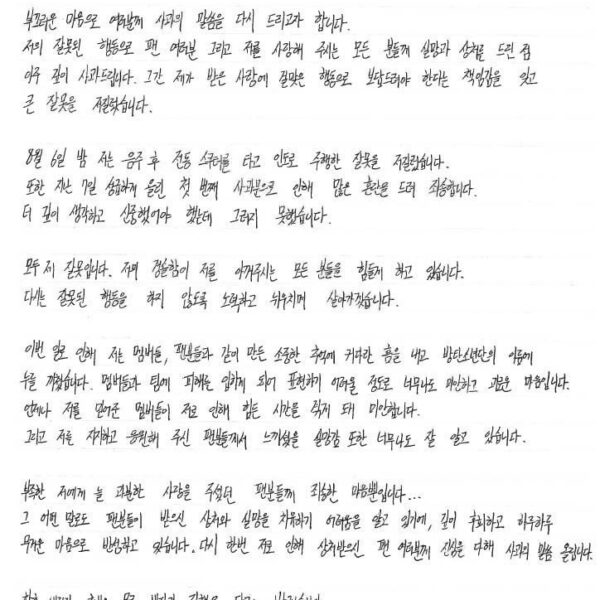 부끄러운 마음으로 여러분께 사과의 말씀을 다시 드리고자 합니다.
저의 잘못된 행동으로 팬 여러분 그리고 저를 사랑해 주시는 모든 분들께 실망과 상처를 드린 점
아주 깊이 사과드립니다. 그간 제가 받은 사랑에 걸맞은 행동으로 보답드려야 한다는 책임감을 잊고
큰 잘못을 저질렀습니다.
8월 6일 밤 저는 음주 후 전동 스쿠터를 타고 인도로 주행한 잘못을 저질렀습니다.
또한 지난 7일 성급하게 올린 첫 번째 사과문으로 인해 많은 혼란을 드려 죄송합니다.
더 깊이 생각하고 신중했어야 했는데 그러지 못했습니다.
모두 제 잘못입니다. 저의 경솔함이 저를 아껴주시는 모든 분들을 힘들게 하고 있습니다.
다시는 잘못된 행동을 하지 않도록 노력하고 뉘우치며 살아가겠습니다.
이번 일로 인해 저는 멤버들, 팬분들과 같이 만든 소중한 추억에 커다란 흠을 내고 방탄소년단의 이름에
누를 끼쳤습니다. 멤버들과 팀에 피해를 입히게 되어 표현하기 어려울 정도로 너무나도 미안하고 괴로운 마음입니다.
언제나 저를 믿어준 멤버들이 저로 인해 힘든 시간을 겪게 돼 미안합니다.
그리고 저를 지지하고 응원해 주신 팬분들께서 느끼셨을 실망감 또한 너무나도 잘 알고 있습니다.
부족한 저에게 늘 과분한 사랑을 주셨던 팬분들께 죄송한 마음뿐입니다...
그 어떤 말로도 팬분들이 받으신 상처와 실망을 치유하기 어려움을 알고 있기에, 깊이 후회하고 하루하루
무거운 마음으로 반성하고 있습니다. 다시 한번 저로 인해 상처받으신 팬 여러분께 진심을 다해 사과의 말씀 올립니다.